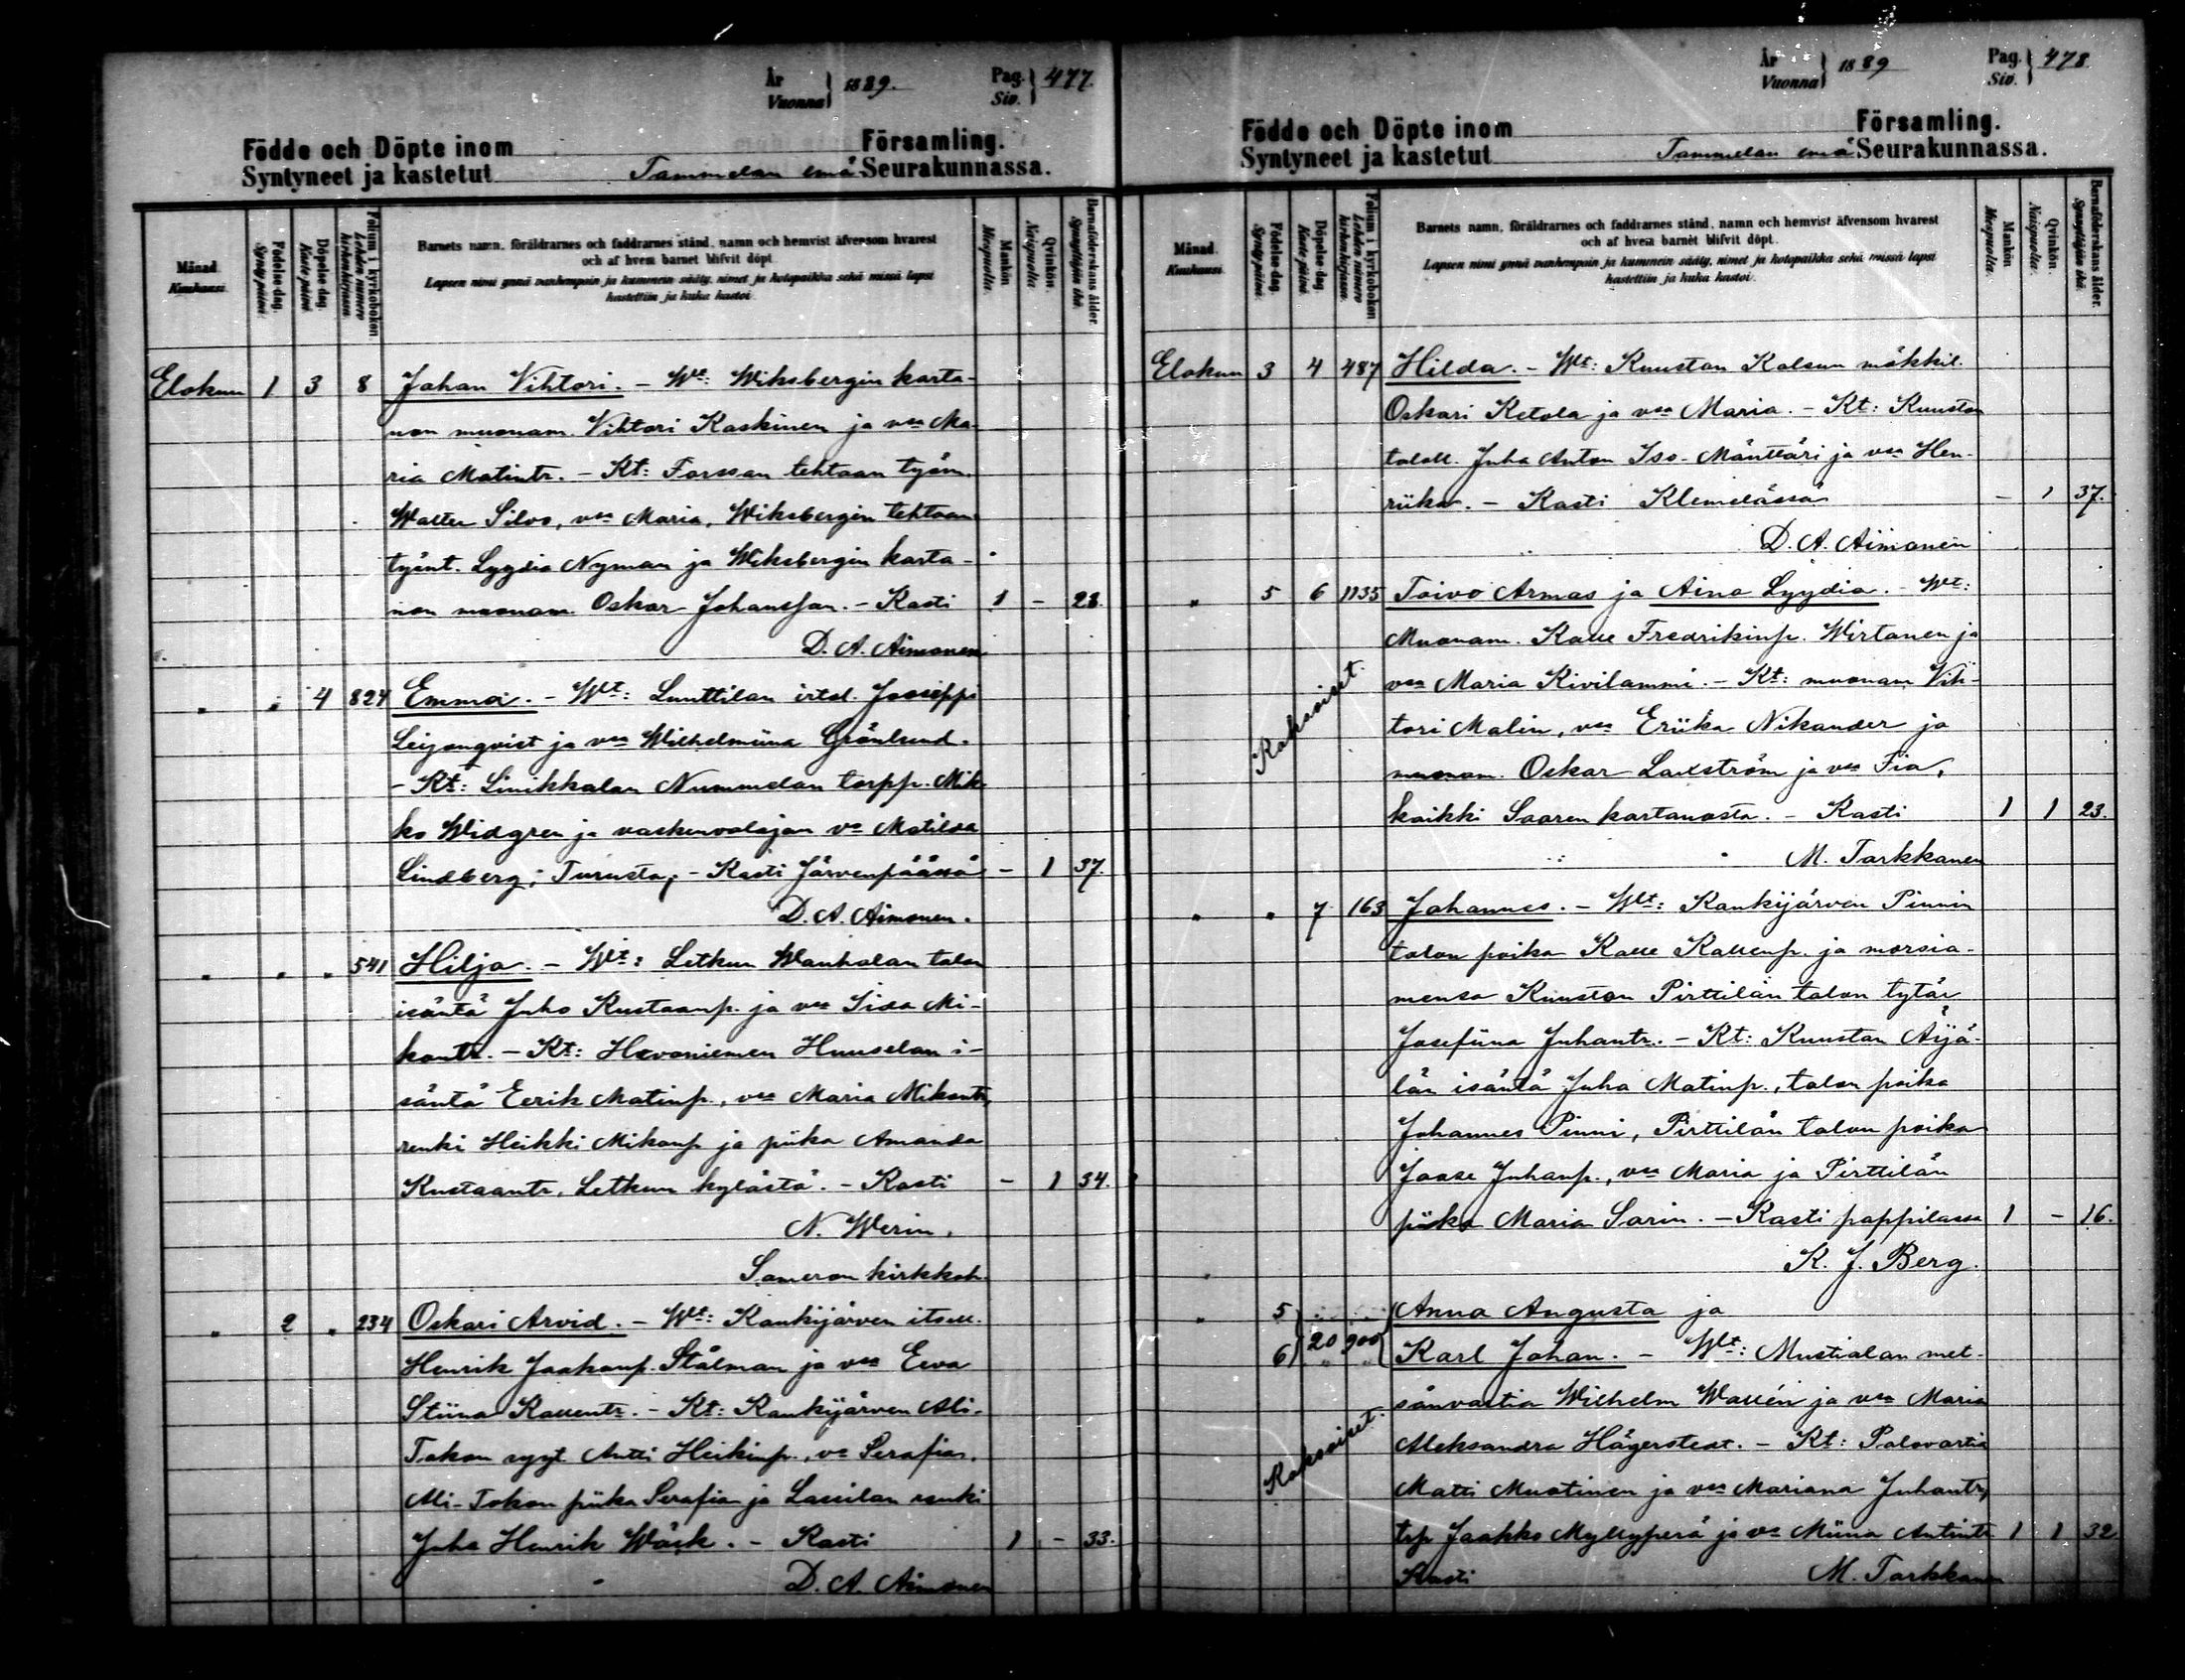 År
Vuonna } 1889.
Pag.
Siv. } 477.
Födde och Döpte inom Församling.
Syntyneet ja kastetut Tammelan emä Seurakunnassa.
Månad. Kuukausi.
Födelse-dag. Synty päivä.
Döpelse-dag. Kaste päivä.
Folium i kyrkoboken Lehden numero kirkonkirjassa.
Barnets namn, föräldrarnes och faddrarnes stånd, namn och hemvist äfvensom hvarest
och af hvem barnet blifvit döpt.
Lapsen nimi ynnä vanhempain ja kummein sääty, nimet ja kotopaikka sekä missä lapsi
kastettiin ja kuka kastoi.
Mankön Miespuolta.
Qvinkön. Naispuolta.
Barnaföderskans ålder. Synnyttäjän ikä.
Elokuu 1 3 8 Johan Vihtori. - Wt: Wiksbergin karta-
non muonam. Vihtori Kaskinen ja vsa Ma-
ria Matintr. - Kt: Forssan tehtaan työm.
Walter Silvo, vsa Maria, Wiksbergin tehtaan
työnt. Lyydia Nyman ja Wiksbergin karta-
non muonam. Oskar Johansson. - Kasti 1 - 28.
D. A. Aimonen
" " 4 824 Emma. - Wt: Luuttilan itsel. Jooseppi
Leijonqvist ja vsa Wilhelmiina Grönlund.
- Kt: Linikkalan Nummelan torpp. Mik-
ko Widgren ja vaskenvalajan va Matilda
Lindberg, Turusta; - Kasti Järvenpäässä - 1 37.
D. A. Aimonen.
" " " 541 Hilja. - Wt: Letkun Wanhalan talon
isäntä Juho Kustaanp. ja vsa Iida Mi-
kontr. - Kt: Havoniemen Huuselan i-
säntä Eerik Matinp., vsa Maria Mikontr,
renki Heikki Mikonp ja piika Amanda
Kustaantr, Letkun kylästä. - Kasti - 1 34.
N. Werin.
Someron kirkkoh.
" 2 " 234 Oskari Arvid. - Wt: Kaukijärven itsell.
Henrik Jaakonp. Stålman ja vsa Eeva
Stiina Kallentr. - Kt: Kaukijärven Ali-
Tokon syyt. Antti Heikinp., va Serafia.
Ali-Tokon piika Serafia ja Lassilan renki
Juha Henrik Wäck. - Kasti 1 - 33.
D. A. Aimonen
År
Vuonna } 1889
Pag.
Siv. } 478
Födde och Döpte inom Församling.
Syntyneet ja kastetut Tammelan emä Seurakunnassa.
Månad. Kuukausi.
Födelse-dag. Synty päivä.
Döpelse-dag. Kaste päivä.
Folium i kyrkoboken Lehden numero kirkonkirjassa.
Barnets namn, föräldrarnes och faddrarnes stånd, namn och hemvist äfvensom hvarest
och af hvem barnet blifvit döpt.
Lapsen nimi ynnä vanhempain ja kummein sääty, nimet ja kotopaikka sekä missä lapsi
kastettiin ja kuka kastoi.
Mankön Miespuolta.
Qvinkön. Naispuolta.
Barnaföderskans ålder. Synnyttäjän ikä.
Elokuu 3 4 487 Hilda. - Wt: Kuuston Kalsun mökkil.
Oskari Ketola ja vsa Maria. - Kt: Kuuston
taloll. Juha Anton Iso-Mänttäri ja vsa Hen-
riika. - Kasti Klemelässä - 1 37.
D. A. Aimonen
" 5 6 1135 Toivo Armas ja Aino Lyydia. - Wt:
Muonam. Kalle Fredrikinp. Wirtanen ja
Kaksoiset.
vsa Maria Kivilammi. - Kt: muonam Vih-
tori Malin, vsa Eriika Nikander ja
muonam. Oskar Laxström ja vsa Fia,
kaikki Saaren kartanosta. - Kasti 1 1 23.
M. Tarkkanen
" " 7 163 Johannes. - Wt: Kaukijärven Pinnin
talon poika Kalle Kallenp. ja morsia-
mensa Kuuston Pirttilän talon tytär
Josefiina Juhantr. - Kt: Kuuston Äijä-
län isäntä Juha Matinp., talon poika
Johannes Pinni, Pirttilän talon poika
Joose Juhanp., vsa Maria ja Pirttilän
piika Maria Sarin. - Kasti pappilassa 1 - 16.
K. J. Berg.
" 5 Anna Augusta ja
6 20 900 Karl Johan. - Wt: Mustialan met-
sänvartia Wilhelm Wallén ja vsa Maria
Kaksoiset.
Aleksandra Hägerstedt. - Kt: Palovartia
Matti Mustinen ja vsa Mariana Juhantr,
trp Jaakko Myllyperä ja va Miina Antintr 1 1 32
Kasti M. Tarkkanen